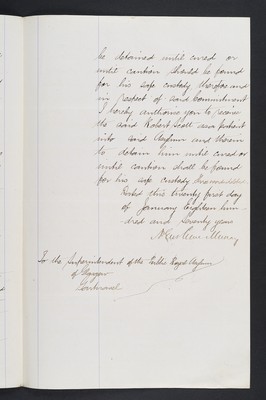 be detained until cured or
until caution should be found
for his safe custody, therefore and
in respect of said Commitment
I hereby authorise you to receive
the said Robert Scott as a patient
into said Asylum and therein
to detain him until cured or
until caution shall be found
for his safe custody
Dated this twenty first day
of January Eighteen hun-
dred and seventy years
Murray
To the Superintendent of the Public Royal Asylum
of Glasgow
Gartnavel